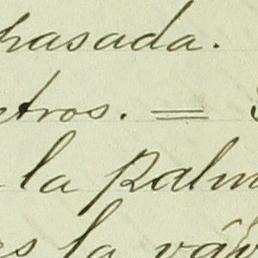 rasada.
tros. =
la Palm
es la váv